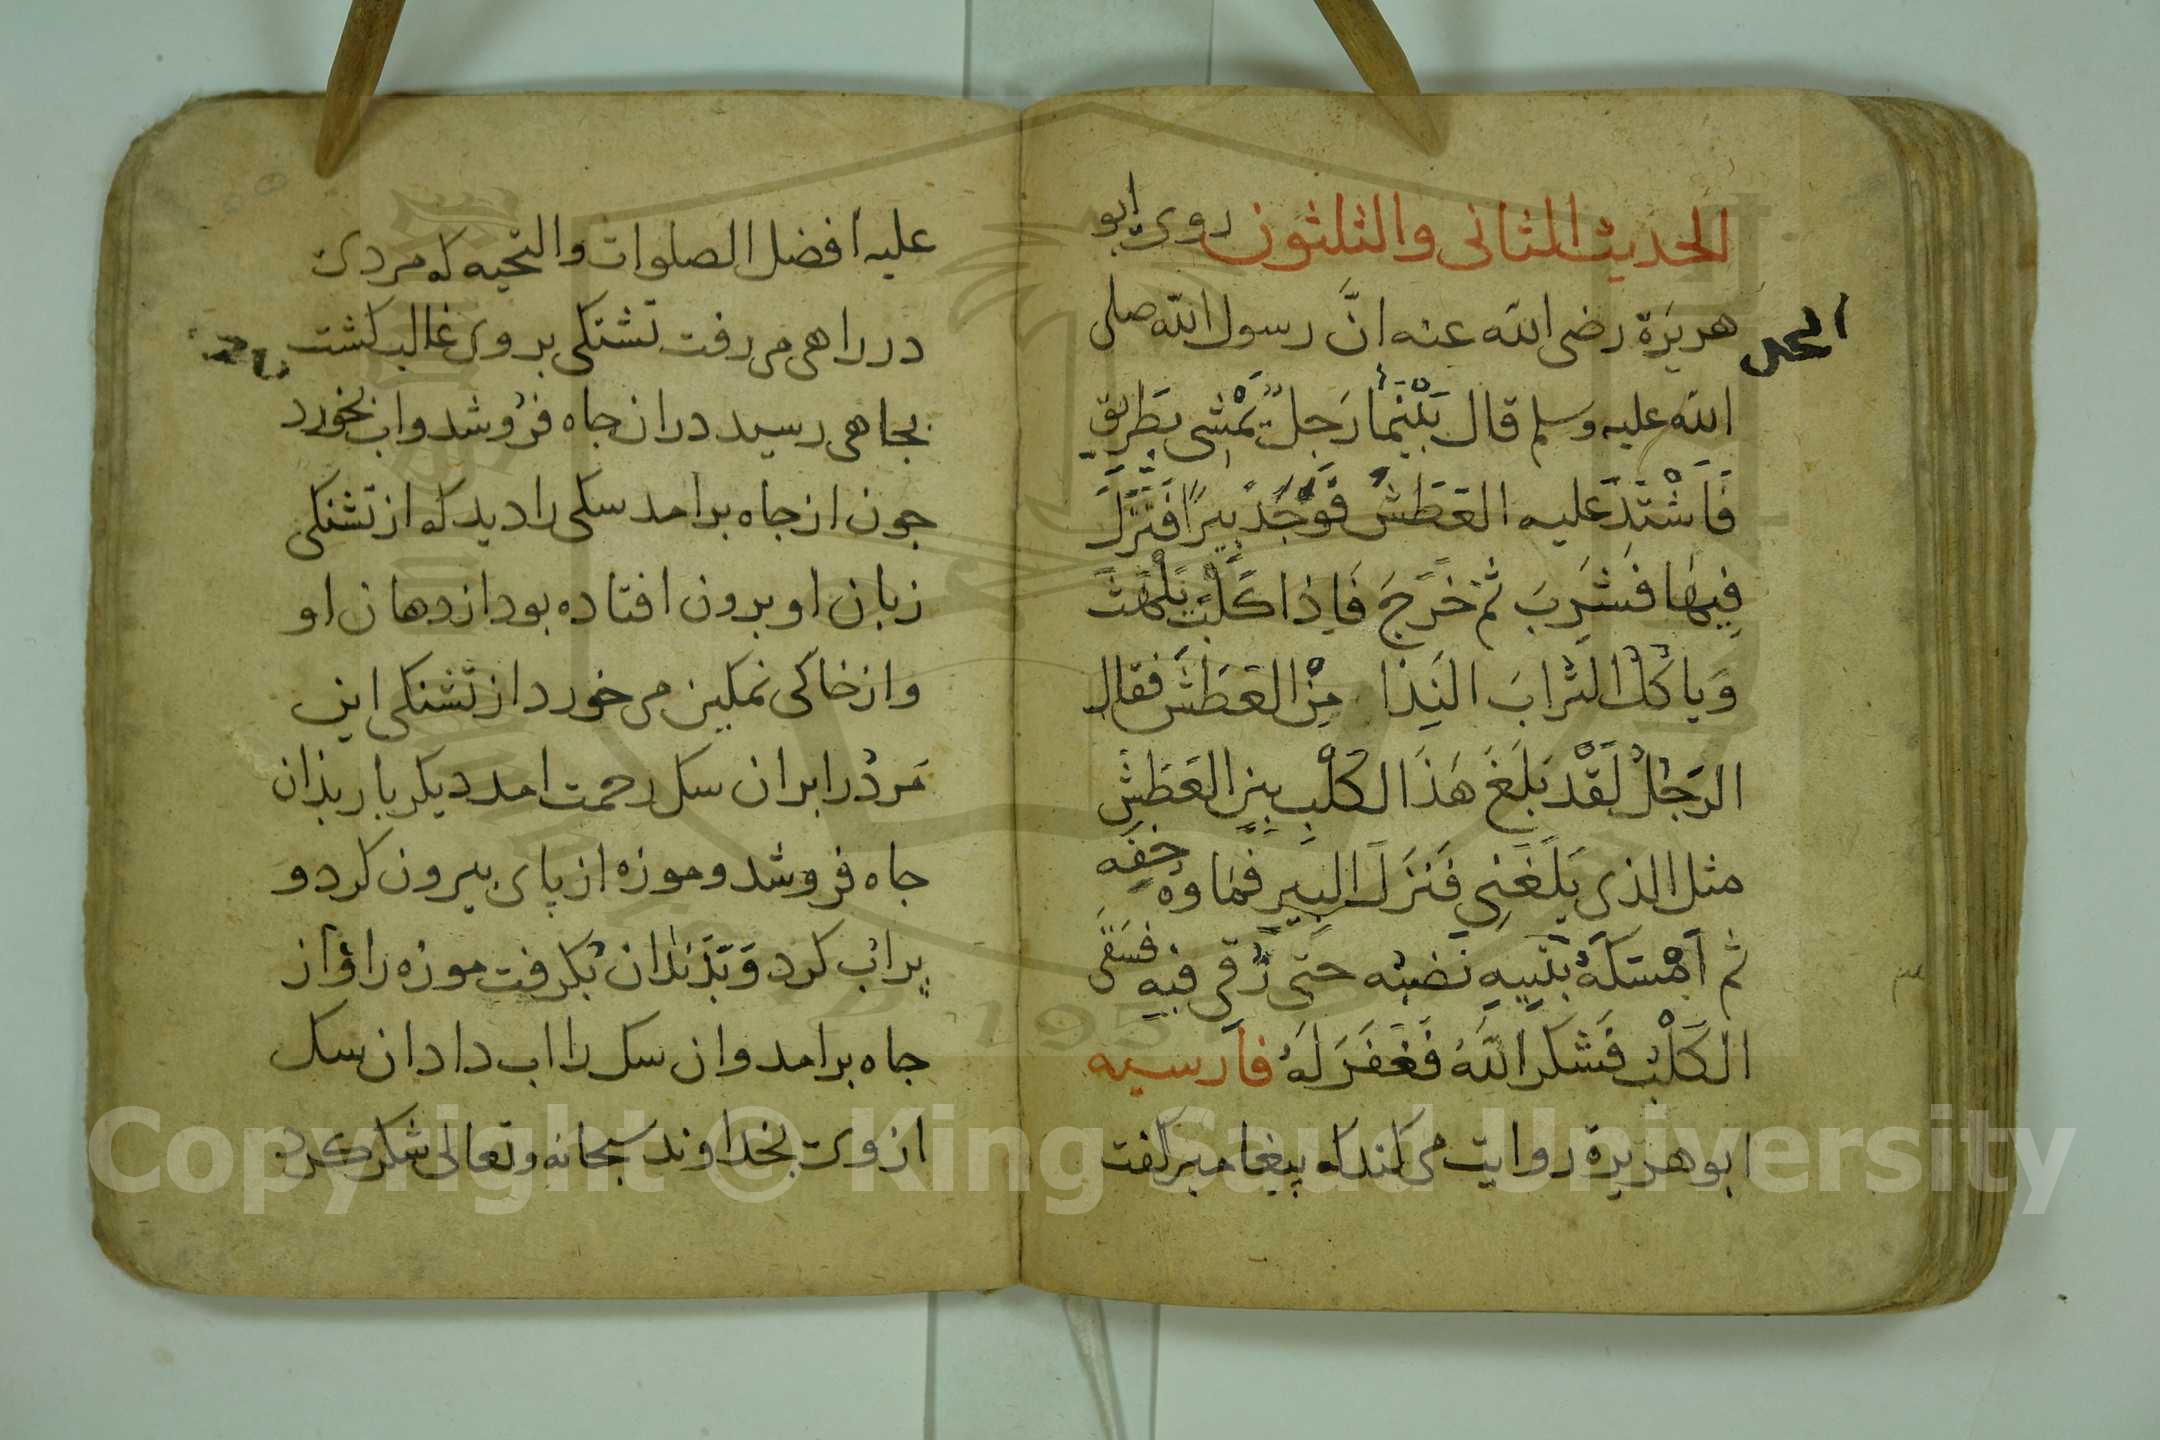 الحديث الثانى والثلثون روى ابو
هريرة رضى الله عنه انّ رسول الله صلى
الحمد
الله عليه وسلم قال بَيْنَمَا رَجلٌ يَمْشِى بِطَرِيقٍ
فَاشْتَدَّ عليه العَطَشُ فَوَجَدَ بِيرًا فَنَزَلَ
فِيهَا فَشَرِبَ ثم خَرَجَ فَاِذا كَلْبٌ يَلْهَثُ
وَياكُلُ الثرابَ النَدَا مِنْ العَطَشِ فقال
الرَجلُ لَقَدْ بَلَغَ هَذَا الكَلْبِ مِنَ العَطَشِ
مثل الذى بَلَغَنِى فَنَزَلَ البِيرِ فماوه خُفِّه
ثم اَمْسَكَهُ بفيهِ حتى رقى فيه فسَقَى
الكَلْبَ فَشَكَرَ اللّهُ فَغَفَرَ لَهُ فارسيه
ابو هريرة روايت مى كند كه پيغامبر كفت
عليه افضل الصلوات والتحيه كه مردى
در راهى مى رفت تشنكى بر وى غالب كشت
بجاهى رسيد دران جاه فروشد واب بخورد
جون از جاه برامد سكى را ديد كه از تشنكى
زبان او برون افتاده بود از دهان او
واز خاكى نمكين مى خورد از تشنكى اين
مرد را بران سك رحمت امد ديكر بار بذان
جاه فروشد وموزه از پاى بيرون كرد و
پر اب كرد وبدندان بكرفت موزه را واز
جاه برامد وان سك را اب داد ان سك
از وى بخداوند سبحانه وتعالى شكر كرد
Copyright © King Saud University
1957